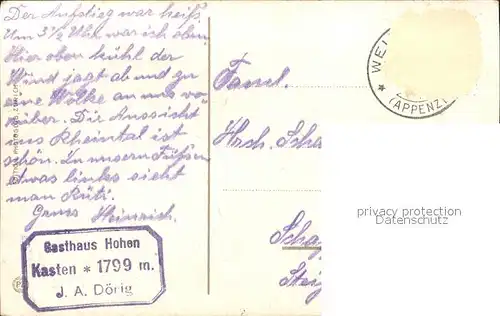 Der Aufstieg war heiß.
Um 3½ Uhr war ich oben
Hier oben kühl der
Wind jagt ab und zu
eine Wolke an uns vo-
rüber. Die Aussicht
ins Rheintal ist
schön. Zu unsern Füßen
etwas links sieht
man Rüti.
Gruss Heinrich.
Gasthaus Hohen
Kasten * 1799 m.
J. A. Dörig
* WEI
(APPENZ
Faml.
Hch. Scha
Scha
Stei
privacy protection
Datenschutz